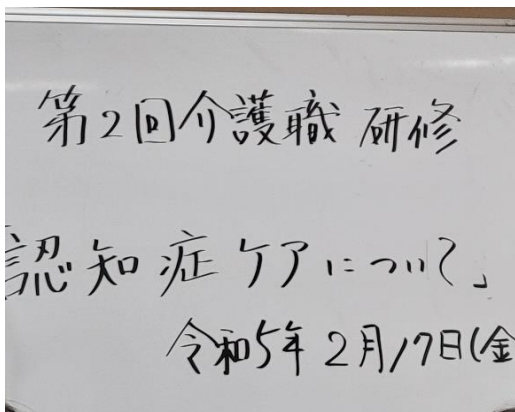 第2回介護職 研修
認知症ケアについて」
令和5年 2月17日(金